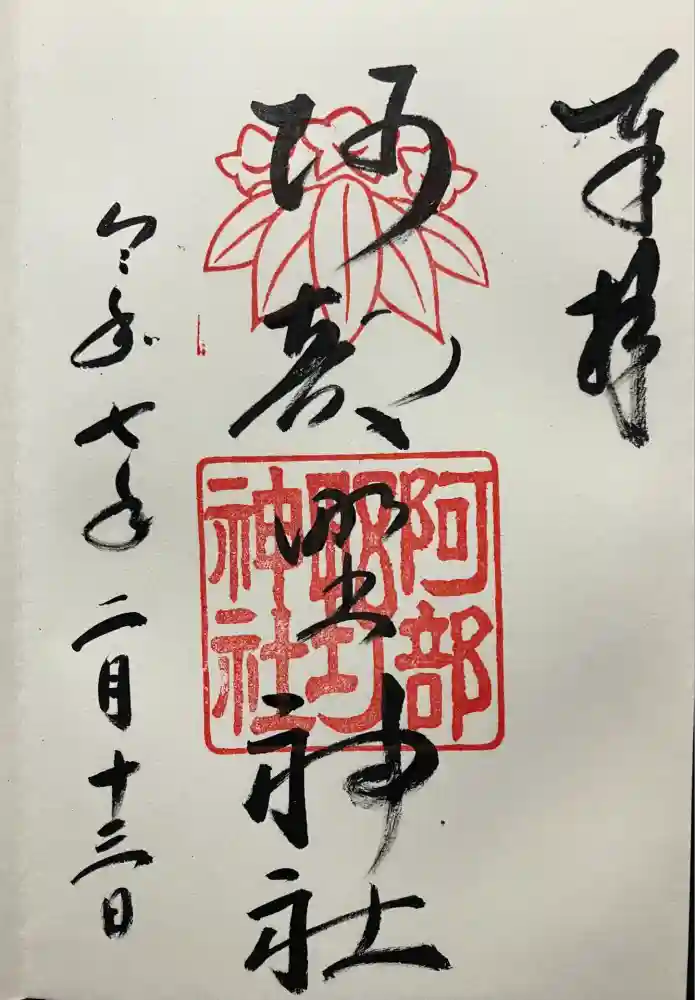 奉拝
阿部野神社
阿部
野
神社
令和七年二月十三日